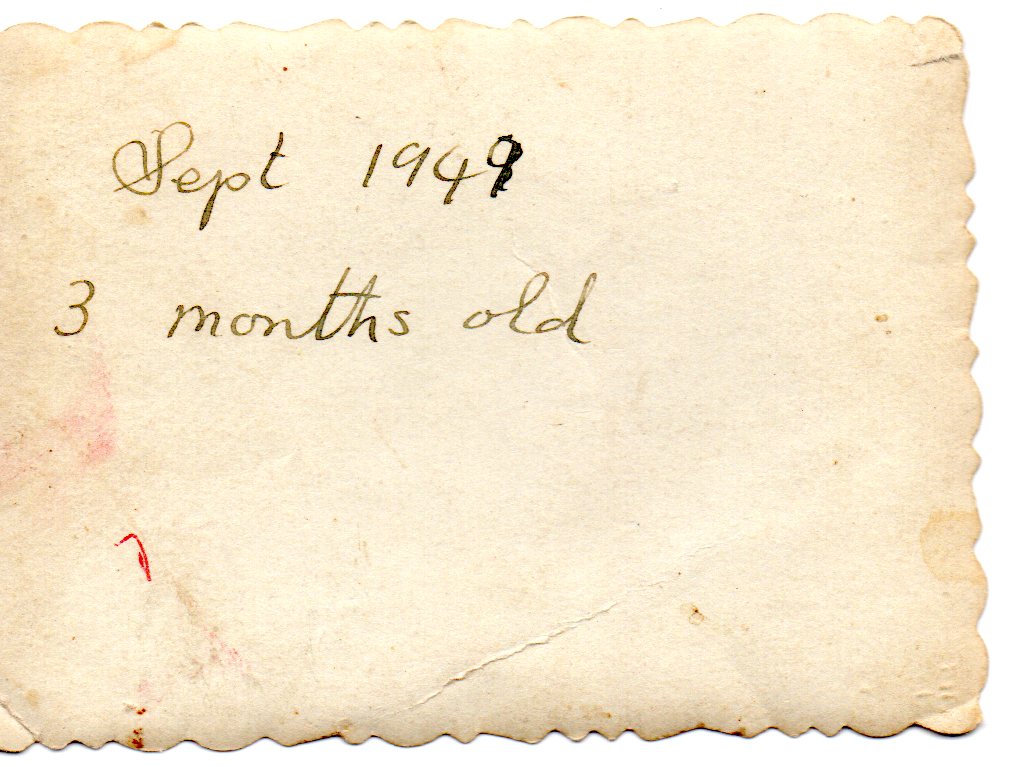 Sept 1949
3 months old